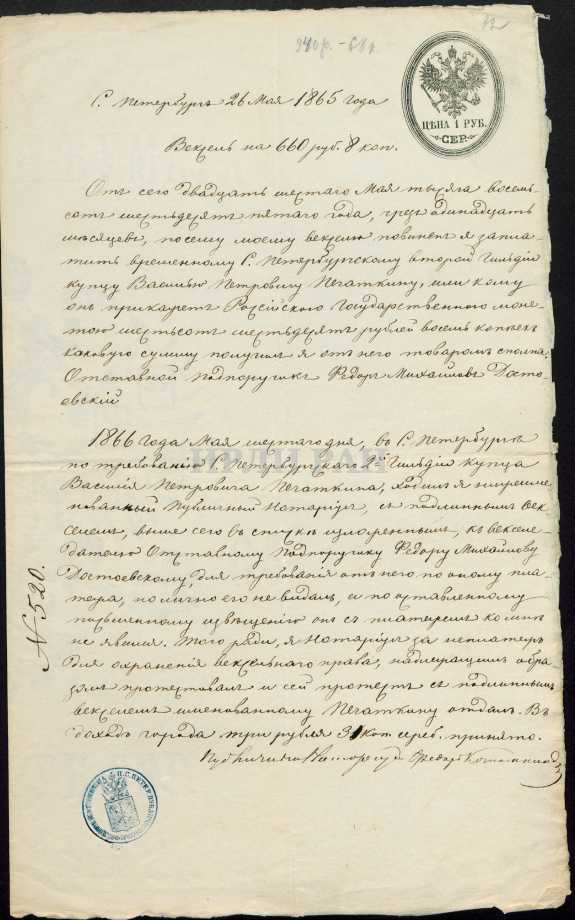 940р. - 61к.
С. Петербургъ 26 Мая 1865 года
ЦѢНА 1 РУБ.
СЕР.
Вексель на 660 руб. 8 коп.
Отъ сего двадцать шестаго Мая тысяча восемь-
сотъ шестьдесятъ пятаго года, чрезъ одинадцать
мѣсяцевъ, по сему моему векселю повиненъ я запла-
тить временному С. Петербургскому второй гильдіи
купцу Василью Петровичу Печаткину, или кому
онъ прикажетъ Россійскою Государственною моне-
тою шестьсотъ шестьдесятъ рублей восемь копѣекъ
каковую сумму получилъ я отъ него товаромъ сполна.
Отставной подпоручикъ Федоръ Михайловъ Досто-
евскій
1866 года Мая шестаго дня, въ С. Петербургѣ
по требованію С. Петербургскаго 2й гильдіи купца
Василія Петровича Печаткина, ходилъ я нижеиме-
нованный Публичный Нотаріусъ, съ подлиннымъ век-
селемъ, выше сего въ спискѣ изложеннымъ, къ векселе-
дателю Отставному Подпоручику Федору Михайлову
Достоевскому, для требованія отъ него по оному пла-
тежа, но лично его не видалъ, и по оставленному
письменному извѣщенію онъ съ платежемъ ко мнѣ
не явился. Того ради, я Нотаріусъ за неплатежъ
для охраненія вексельнаго права, надлежащимъ обра-
зомъ протестовалъ и сей протестъ съ подлиннымъ
векселемъ именованному Печаткину отдалъ. Въ
доходъ города три рубля 31 коп. сереб. принято.
Публичный Нотаріусъ Федоръ
N 520.
ИРЛИ РАН